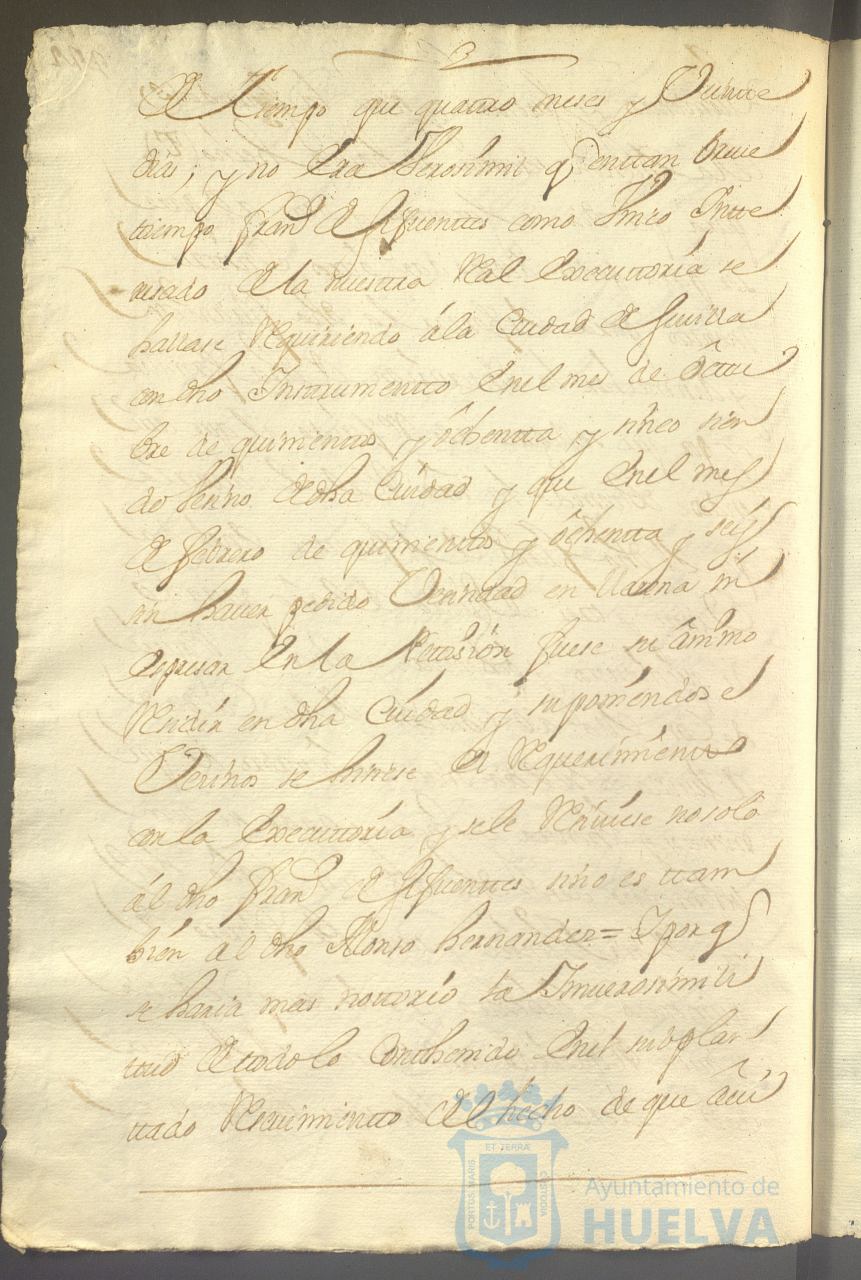 el tiempo que quattro meses y Veintte
dias; y no era Verosimil q̃ en ttan breue
tiempo Fran.co de Sifuenttes como Unico Intte
resado de la nuestra Real Executtoria se
hallase Requiriendo â la Ciudad de Seuilla
con dho Instrumentto en el mes de Octtu
bre de quinienttos y ôchentta y sinco sien
do Vesino de dha Ciudad y que en el mes
de febrero de quinienttos y ôchentta y seis
sin hauer pedido Vesindad en
espresar en la fuese su ânimo
Residir en dha Ciudad y suponiendose
Vesinos se hisiese el Requerimientto
con la Executtoria y se le Resiuiese no solo
âl dho Fran.co de Sifuenttes sino es ttam
bien al dho Alonso Hernandez = Y por q̃
se haria mas nottorio la Inuerosimili
ttud de ttodo lo conthenido en el suplan
ttado Requimientto el hecho de que
PORTUS MARIS
ET TERRÆ
CUSTODIA
Ayuntamiento de
HUELVA